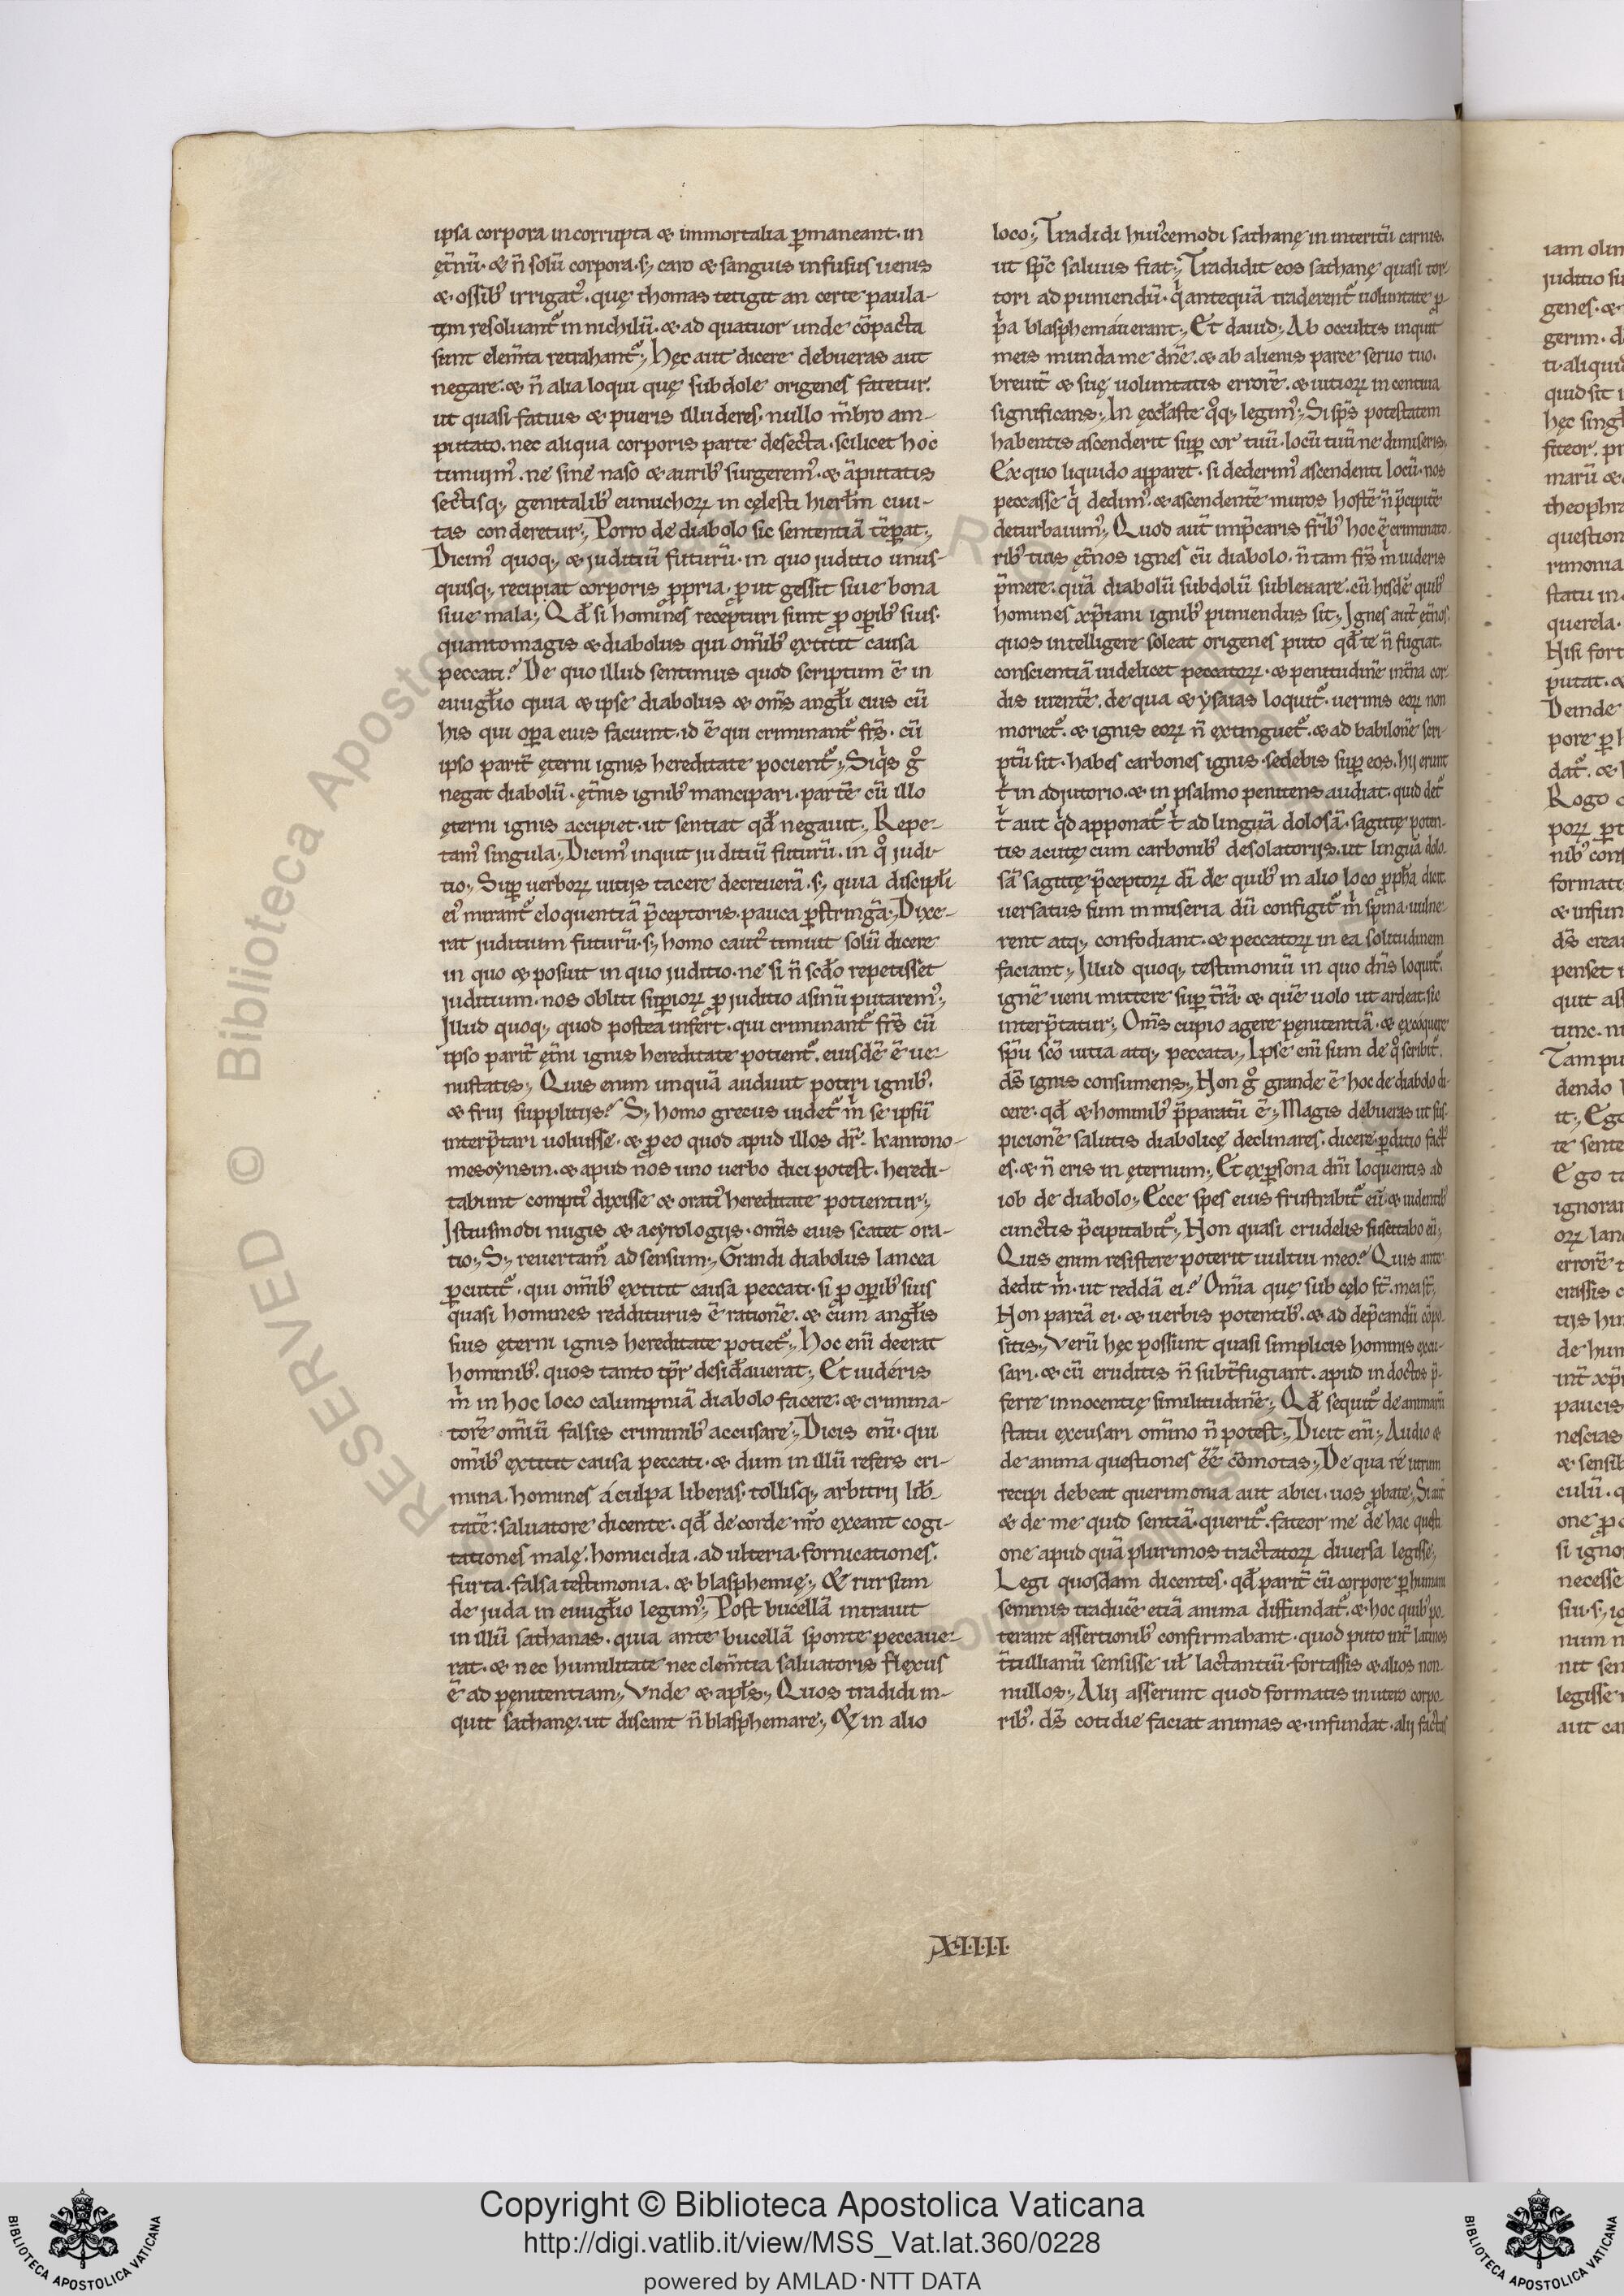 ipsa corpora incorrupta & immortalia p̱maneant. in
ęt̃nũ. & ñ solũ corpora. s; caro & sanguis infusus uenis
&. ossib; irrigat᷒. quę thomas tetigit an certe paula-
tim resoluant᷒ in nichilũ. & ad quatuor unde cõpacta
sunt elem̃ta retrahant᷒; Hęc aut dicere debueras aut
negare. & ñ alia loqui quę subdole origenes fatetur.
ut quasi fatuis & pueris illuderes. nullo m̃bro am-
putato. nec aliqua corporis parte desecta. scilicet hoc
timuim᷒. ne sine naso & aurib; surgerem᷒. & ãputatis
sectisq; genitalib; eunuchoꝝ in cęlesti hierl̃m ciui-
tas conderetur; Porro de diabolo sic sententiã tẽperat;
Dicim᷒ quoq; & juditiũ futurũ. in quo juditio unus-
quisq; recipiat corporis ꝓpria. ꝓut gessit siue bona
siue mala; Qđ si homines recepturi sunt ꝓ op̱ib; suis.
quantomagis & diabolus qui om̃ib; extitit causa
peccati? De quo illud sentimus quod scriptum ẽ in
euuḡlio quia & ipse diabolus & om̃s angl̃i eius cũ
his qui op̱a eius faciunt. id ẽ qui criminant᷒ fr̃s. cũ
ipso parit̃ ęterni ignis hereditate pocient᷒; Siq̇s g̊
negat diabolũ. ęt̃nis ignib; mancipari. partẽ cũ illo
ęterni ignis accipiet. ut sentiat qđ negauit; Repe-
tam᷒ singula; Dicim᷒ inquit juditiũ futurũ. in q̊ judi-
tio; Sup̱ uerboꝝ uitijs tacere decreuerã. s; quia discipl̃i
ei᷒ mirant᷒ eloquentiã p̃ceptoris. pauca p̱stringã; Dixe-
rat juditium futurũ. s; homo caut᷒ timuit solũ dicere
in quo & posuit in quo juditio. ne si ñ scđo repetisset
juditium. nos obliti sup̱ioꝝ ꝓ juditio asinũ putarem᷒;
Illud quoq; quod postea infert. qui criminant᷒ fr̃s cũ
ipso parit̃ ęt̃ni ignis hereditate potient᷒. eiusdẽ ẽ ue-
nustatis; Quis enim unquã audiuit potiri ignib;.
& frui supplitijs? S; homo grecus uidet᷒ m̃ se ipsũ
interp̃tari uoluisse. & ꝓ eo quod apud illos dr̃. kanrono-
mesoynsin. & apud nos uno uerbo dici potest. heredi-
tabunt compti᷒ dixisse & orati᷒ hereditate potientur;
Istiusmodi nugis & acyrologijs. om̃is eius scatet ora-
tio; S; reuertam᷒ ad sensum; Grandi diabolus lancea
p̱cutit᷒. qui om̃ib; extitit causa peccati. si ꝓ op̱ib; suis
quasi homines redditurus ẽ rationẽ. & cum angl̃is
suis ęterni ignis hereditate potiet᷒; Hoc enĩ deerat
hominib;. quos tanto tp̃r desiđauerat; Et uideris
m̃ in hoc loco calumpniã diabolo facere. & crimina-
torẽ om̃iũ falsis criminib; accusare; Dicis enĩ. qui
om̃ib; extitit causa peccati. & dum in illũ refers cri-
mina. homines a culpa liberas. tollisq; arbitrij lib̃-
tatẽ. saluatore dicente. qđ de corde nr̃o exeant cogi-
tationes malę. homicidia. adulteria. fornicationes.
furta. falsa testimonia. & blasphemię; & rursum
de juda in euuḡlio legim᷒; Post bucellã intrauit
in illũ sathanas. quia ante bucellã sponte peccaue-
rat. & nec humilitate nec clem̃tia saluatoris flexus
ẽ ad pęnitentiam; Vnde & apl̃s; Quos tradidi in-
quit sathanę. ut discant ñ blasphemare; & in alio
loco; Tradidi huicemodi sathanę in interitũ carnis.
ut sp̃c saluus fiat; Tradidit eos sathanę quasi tor-
tori ad puniendũ. q̇ antequã traderent᷒ uoluntate ꝓ-
p̃a blasphemauerant; Et dauid; Ab occultis inquit
meis munda me dñe. & ab alienis parce seruo tuo.
breuit̃ & suę uoluntatis errorẽ. & uitioꝝ incentiua
significans; In ęccl̃aste q̊q; legim᷒; Si sp̃s potestatem
habentis ascenderit sup̱ cor tuũ. locũ tuũ ne dimiseris;
Ex quo liquido apparet. si dederim᷒ ascendenti locũ. nos
peccasse q̇ dedim᷒. & ascendentẽ muros hostẽ ñ p̃cipitẽ
deturbauim᷒; Quod aut̃ imp̃caris fr̃ib; hoc ẽ criminato-
rib; tuis ęt̃nos ignes cũ diabolo. ñ tam fr̃s m̃ uideris
p̃mere. quã diabolũ subdolũ subleuare. cũ hisdẽ quib;
homines xp̃iani ignib; puniendus sit; Ignes aut̃ ęt̃nos.
quos intelligere soleat origenes puto qđ te ñ fugiat.
conscientiã uidelicet peccatoꝝ. & penitudinẽ int̃na cor-
dis urentẽ. de qua & ysaias loquit᷒. uermis eoꝝ non
moriet᷒. & ignis eoꝝ ñ extinguet᷒. & ad babilonẽ scri-
ptũ sit. habes carbones ignis. sedebis sup̱ eos. hij erunt
t̃ in adjutorio. & in psalmo penitens audiat. quid det᷒
t̃ aut q̇d apponat᷒ t̃ ad linguã dolosã. sagittę poten-
tis acutę cum carbonib; desolatorijs. ut linguã dolo-
sã sagittę p̃ceptoꝝ dĩ de quib; in alio loco ꝓph̃a dicit.
uersatus sum in miseria dũ configit᷒ m̃ spina. uulne-
rent atq; confodiant. & peccatoꝝ in ea solitudinem
faciant; Illud quoq; testimoniũ in quo dñs loquit᷒.
ignẽ ueni mittere sup̱ t̃rã. & quẽ uolo ut ardeat. sic
interp̃tatur; Om̃s cupio agere pęnitentiã. & excoquere
sp̃u sc̃o uitia atq; peccata; Ipse enĩ sum de q̊ scribit᷒.
ds̃ ignis consumens; Non g̊ grande ẽ hoc de diabolo di-
cere. qđ & hominib; p̃paratũ ẽ; Magis debueras ut sus-
picionẽ salutis diabolicę declinares. dicere. p̱ditio fact᷒
es. & ñ eris in ęternum; Et ex p̱sona dñi loquentis ad
iob de diabolo; Ecce spes eius frustrabit᷒ eũ. & uidentib;
cunctis p̃cipitabit᷒; Non quasi crudelis suscitabo eũ;
Quis enim resistere poterit uultui meo? Quis ante
dedit m̃. ut reddã ei? Om̃ia quę sub cęlo st̃. mea st̃;
Non parcã ei. & uerbis potentib;. & ad dep̃candũ cõpo-
sitis; Verũ hęc possunt quasi simplicis hominis excu-
sari. & cũ eruditis ñ subt̃fugiant. apud indoctos p̃-
ferre innocentię similitudinẽ; Qđ sequit᷒ de animarũ
statu excusari om̃ino ñ potest; Dicit enĩ; Audio &
de anima questiones ẽẽ cõmotas; De qua re utrum
recipi debeat querimonia aut abici. uos ꝓbate; Si aut̃
& de me quid sentiã. querit᷒. fateor me de hac questi-
one apud quã plurimos tractatoꝝ diuersa legisse;
Legi quosdam dicentes. qđ parit̃ cũ corpore p̱ humani
seminis traducẽ etiã anima diffundat᷒. & hoc quib; po-
terant assertionib; confirmabant. quod puto int̃ latinos
t̃tullianũ sensisse uł lactantiũ. fortassis & alios non-
nullos; Alij asserunt quod formatis in utero corpo-
rib;. ds̃ cotidie faciat animas & infundat. alij factas
.X.I.I.I.I.
Copyright © Biblioteca Apostolica Vaticana
http://digi.vatlib.it/view/MSS_Vat.lat.360/0228
powered by AMLAD·NTT DATA
BIBLIOTECA APOSTOLICA VATICANA
BIBLIOTECA APOSTOLICA VATICANA